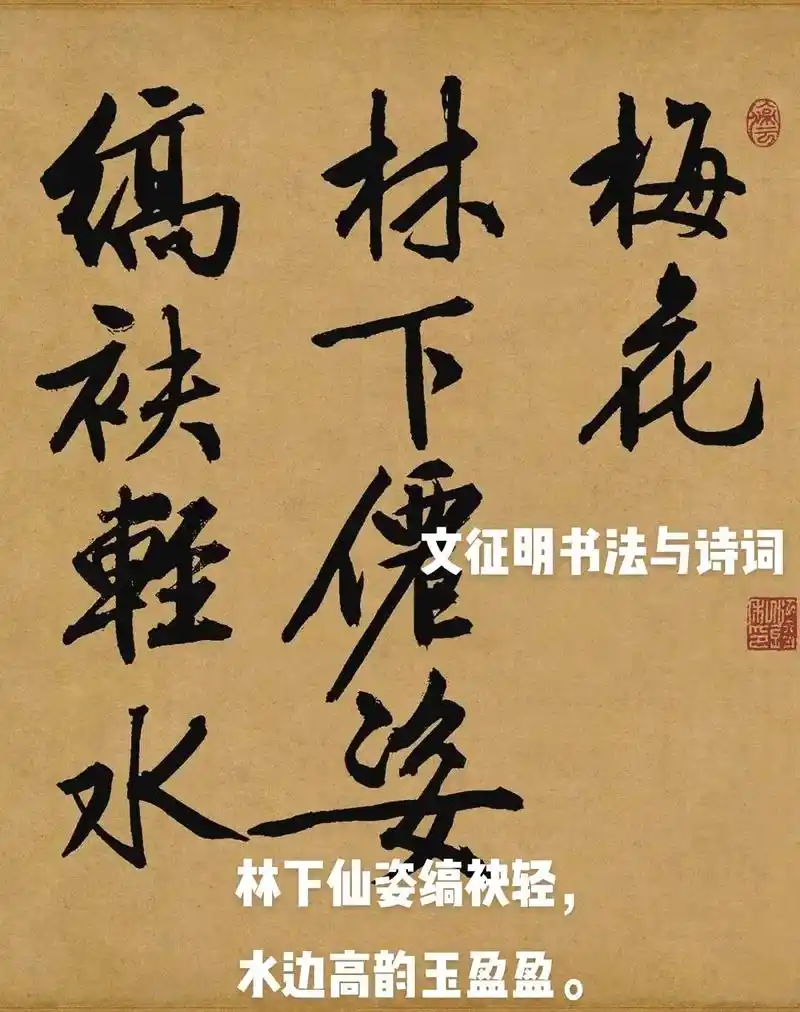 梅花
林下僊姿
縞袂輕水
文征明书法与诗词
林下仙姿缟袂轻，
水边高韵玉盈盈。